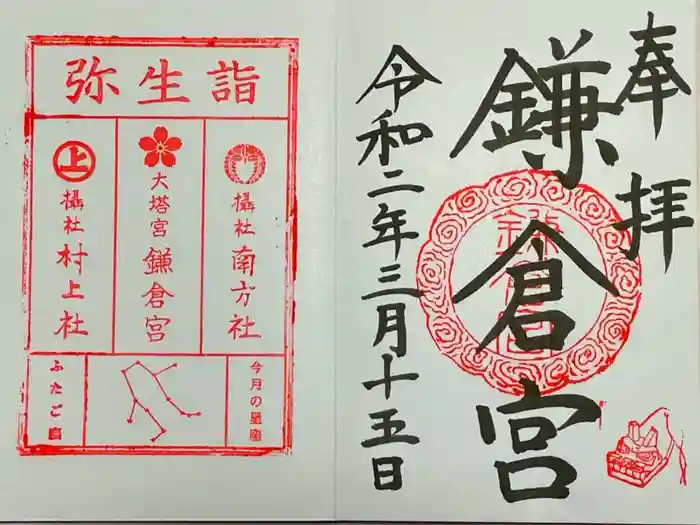 奉拝
鎌倉宮
鎌倉宮
令和二年三月十五日
弥生詣
攝社 南方社
大塔宮 鎌倉宮
上
攝社 村上社
今月の星座
ふたご座